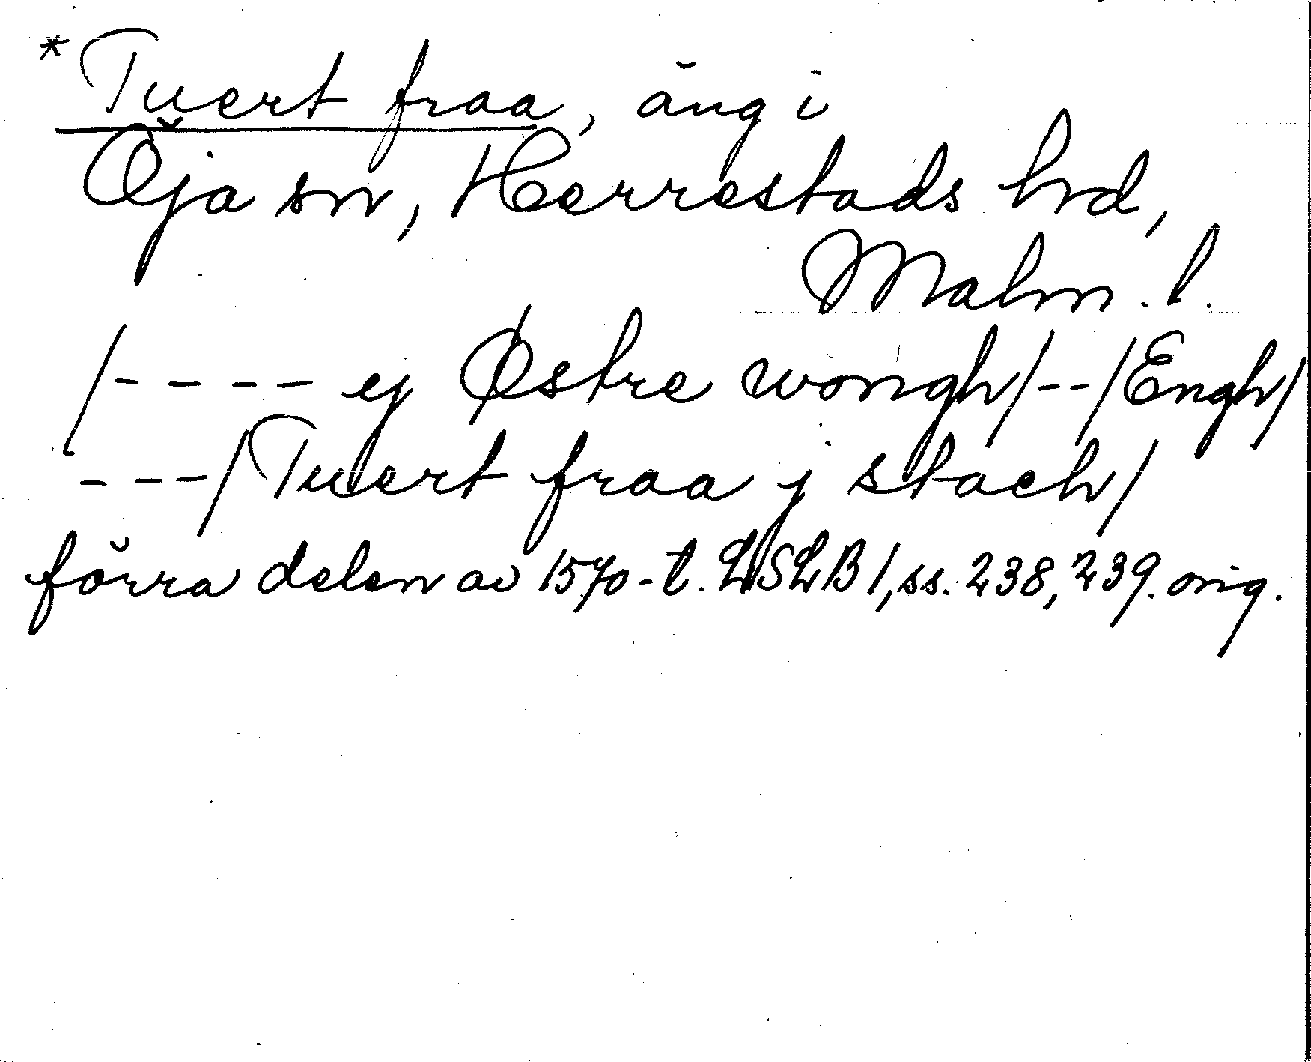 * Tuert fraa, äng i
Öja sn, Herrestads hrd,
Malm. l.
/---- ej Østre wongh/--/Engh/
---/Tuert fraa j stach/
förra delen av 1570-t. LSLB 1, ss. 238, 239. orig.